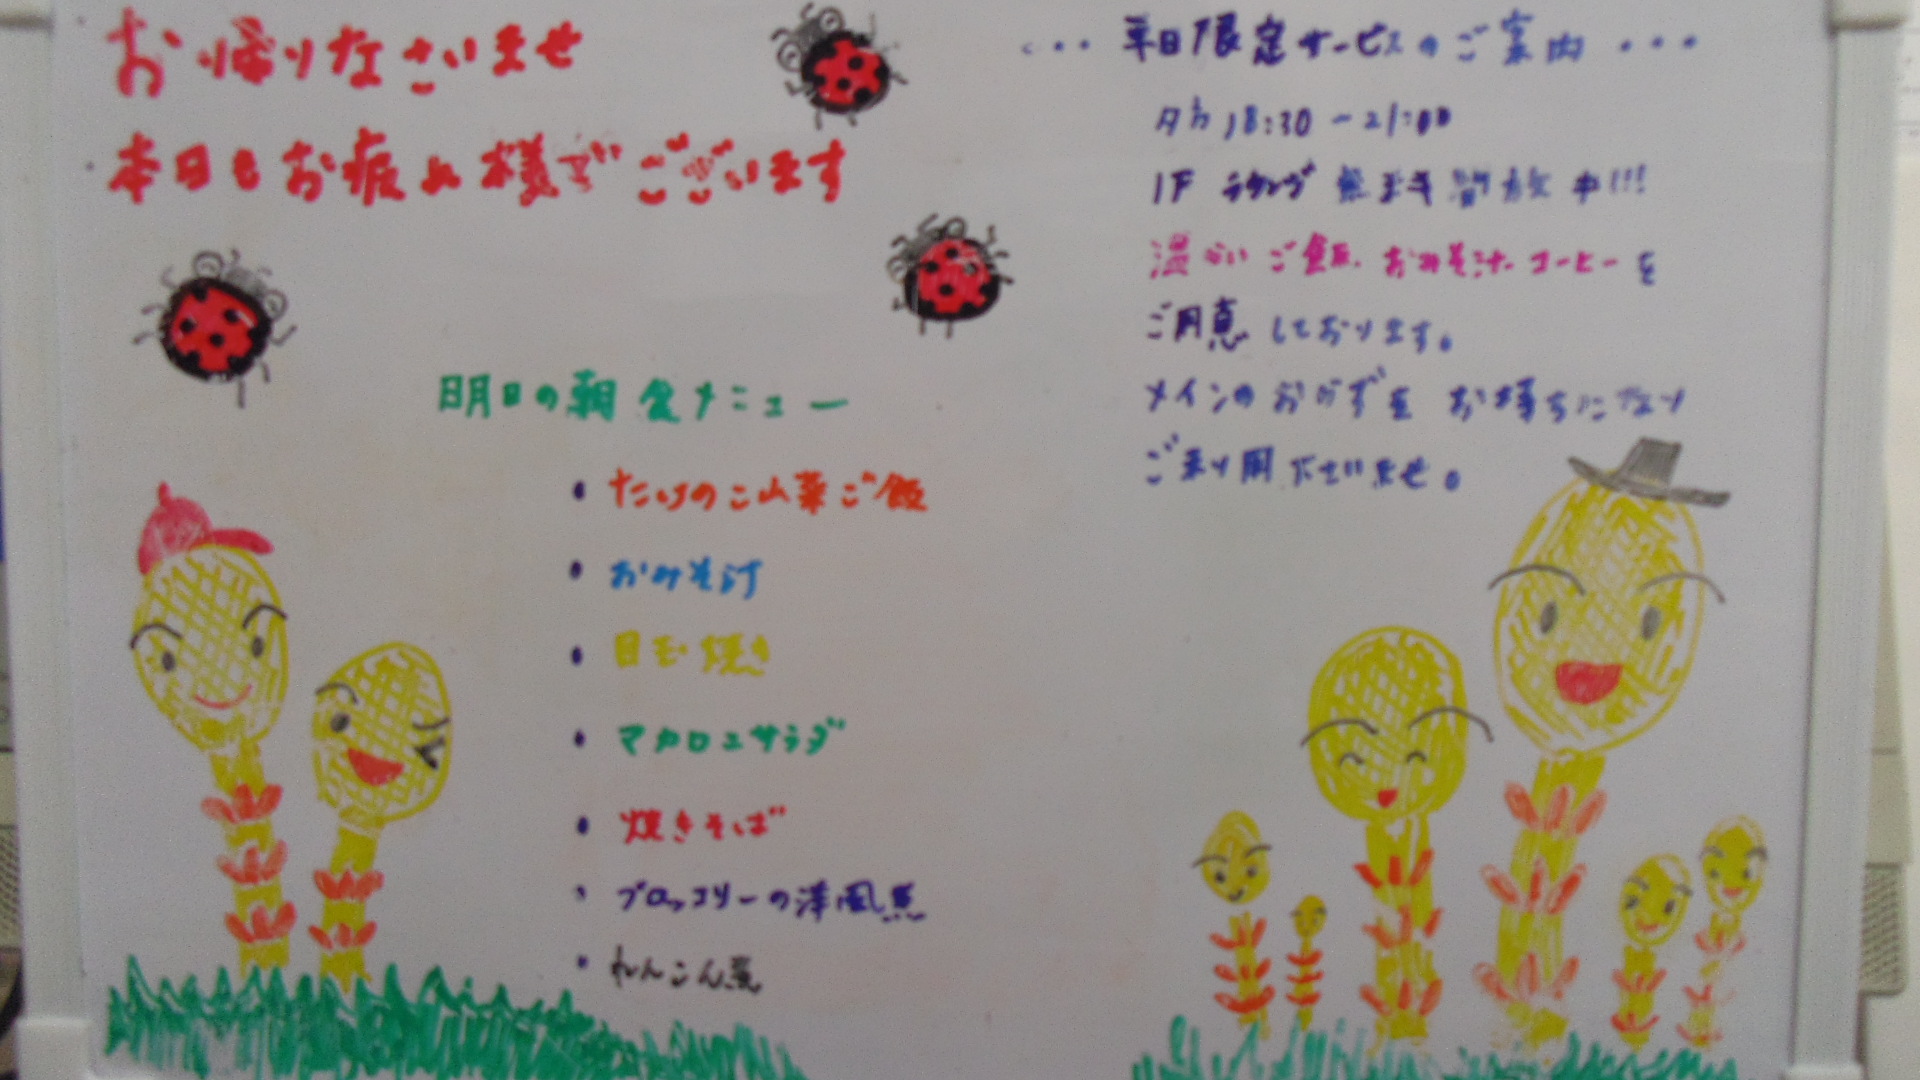 お帰りなさいませ
本日もお疲れ様でございます
明日の朝食メニュー
・たけのこ山菜ご飯
・おみそ汁
・目玉焼き
・マカロニサラダ
・焼きそば
・ブロッコリーの洋風煮
・れんこん煮
・・・平日限定サービスのご案内・・・
夕方18:30-21:00
1F ラウンジ無料開放中!!!
温かいご飯、おみそ汁、コーヒーを
ご用意しております。
メインのおかずをお持ちになり
ご利用下さいませ。